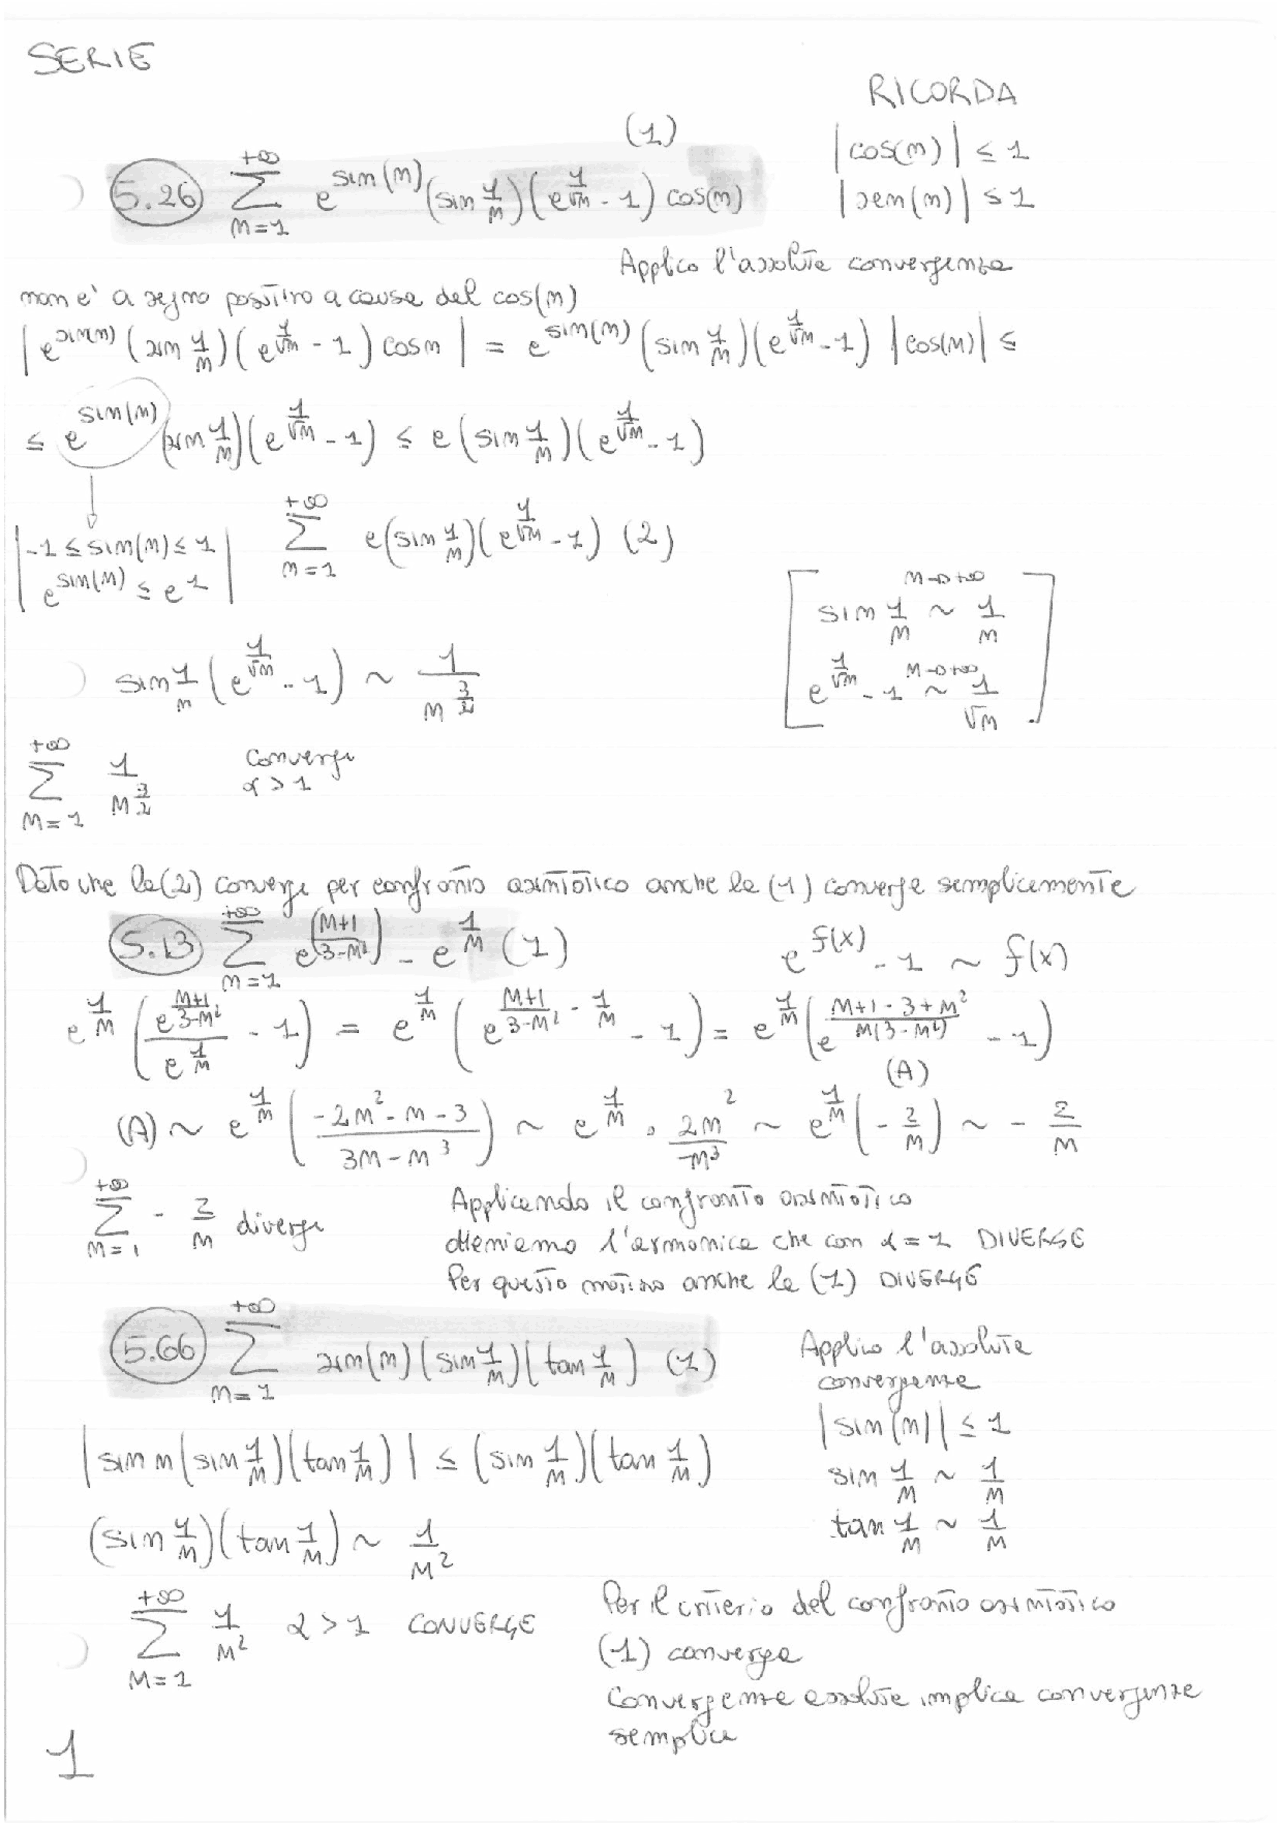 SERIE
RICORDA
(1)
|cos(n)| ≤ 1
5.26 +∞ ∑ n=1 e^sin(n) (sin 1/n)(e^(1/√n) - 1) cos(n)
|sen(n)| ≤ 1
Applico l'assoluta convergenza
non e' a segno positivo a causa del cos(n)
|e^sin(n) (sin 1/n)(e^(1/√n) - 1) cos n| = e^sin(n) (sin 1/n)(e^(1/√n) - 1) |cos(n)| ≤
≤ e^sin(n) (sin 1/n)(e^(1/√n) - 1) ≤ e (sin 1/n)(e^(1/√n) - 1)
|-1 ≤ sin(n) ≤ 1|
e^sin(n) ≤ e^1
+∞ ∑ n=1 e(sin 1/n)(e^(1/√n) - 1) (2)
n→+∞
sin 1/n ~ 1/n
n→+∞
e^(1/√n) - 1 ~ 1/√n
sin 1/n (e^(1/√n) - 1) ~ 1/n^(3/2)
+∞ ∑ n=1 1/n^(3/2) converge
α > 1
Dato che la (2) converge per confronto asintotico anche la (1) converge semplicemente
5.13 +∞ ∑ n=1 e^((n+1)/(3-n²)) - e^(1/n) (1)
e^f(x) - 1 ~ f(x)
e^(1/n) (e^((n+1)/(3-n²))/e^(1/n) - 1) = e^(1/n) (e^((n+1)/(3-n²) - 1/n) - 1) = e^(1/n) (e^((n+1-3+n²)/(n(3-n²))) - 1)
(A)
(A) ~ e^(1/n) ((-2n²-n-3)/(3n-n³)) ~ e^(1/n) · 2n²/-n³ ~ e^(1/n) (-2/n) ~ -2/n
+∞ ∑ n=1 -2/n diverge
Applicando il confronto asintotico
otteniamo l'armonica che con α = 1 DIVERGE
Per questo motivo anche la (1) DIVERGE
5.66 +∞ ∑ n=1 sin(n)(sin 1/n)(tan 1/n) (1)
Applico l'assoluta
convergenza
|sin(n)| ≤ 1
sin 1/n ~ 1/n
tan 1/n ~ 1/n
|sin n(sin 1/n)(tan 1/n)| ≤ (sin 1/n)(tan 1/n)
(sin 1/n)(tan 1/n) ~ 1/n²
+∞ ∑ n=1 1/n² α > 1 CONVERGE
Per il criterio del confronto asintotico
(1) converge
Convergenza assoluta implica convergenza
semplice
1